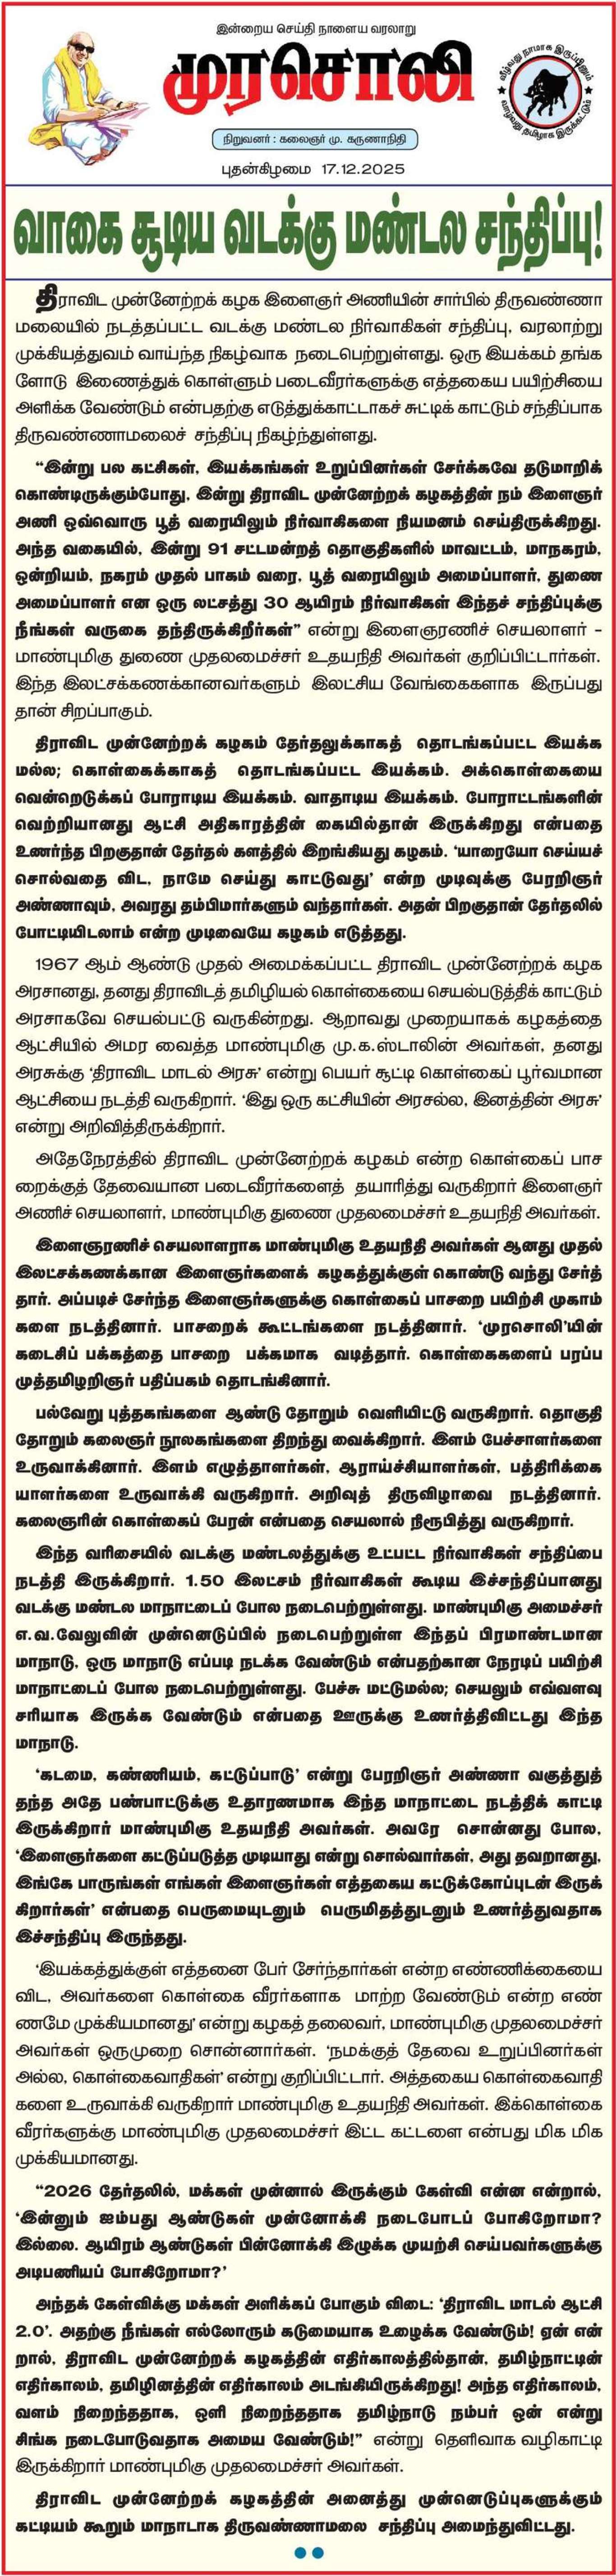 இன்றைய செய்தி நாளைய வரலாறு
முரசொலி
வீழ்வது நாமாக இருப்பினும்
வாழ்வது தமிழாக இருக்கட்டும்
நிறுவனர் : கலைஞர் மு. கருணாநிதி
புதன்கிழமை 17.12.2025
வாகை சூடிய வடக்கு மண்டல சந்திப்பு!
திராவிட முன்னேற்றக் கழக இளைஞர் அணியின் சார்பில் திருவண்ணா
மலையில் நடத்தப்பட்ட வடக்கு மண்டல நிர்வாகிகள் சந்திப்பு, வரலாற்று
முக்கியத்துவம் வாய்ந்த நிகழ்வாக நடைபெற்றுள்ளது. ஒரு இயக்கம் தங்க
ளோடு இணைத்துக் கொள்ளும் படைவீரர்களுக்கு எத்தகைய பயிற்சியை
அளிக்க வேண்டும் என்பதற்கு எடுத்துக்காட்டாகச் சுட்டிக் காட்டும் சந்திப்பாக
திருவண்ணாமலைச் சந்திப்பு நிகழ்ந்துள்ளது.
“இன்று பல கட்சிகள், இயக்கங்கள் உறுப்பினர்கள் சேர்க்கவே தடுமாறிக்
கொண்டிருக்கும்போது, இன்று திராவிட முன்னேற்றக் கழகத்தின் நம் இளைஞர்
அணி ஒவ்வொரு பூத் வரையிலும் நிர்வாகிகளை நியமனம் செய்திருக்கிறது.
அந்த வகையில், இன்று 91 சட்டமன்றத் தொகுதிகளில் மாவட்டம், மாநகரம்,
ஒன்றியம், நகரம் முதல் பாகம் வரை, பூத் வரையிலும் அமைப்பாளர், துணை
அமைப்பாளர் என ஒரு லட்சத்து 30 ஆயிரம் நிர்வாகிகள் இந்தச் சந்திப்புக்கு
நீங்கள் வருகை தந்திருக்கிறீர்கள்” என்று இளைஞரணிச் செயலாளர் –
மாண்புமிகு துணை முதலமைச்சர் உதயநிதி அவர்கள் குறிப்பிட்டார்கள்.
இந்த இலட்சக்கணக்கானவர்களும் இலட்சிய வேங்கைகளாக இருப்பது
தான் சிறப்பாகும்.
திராவிட முன்னேற்றக் கழகம் தேர்தலுக்காகத் தொடங்கப்பட்ட இயக்க
மல்ல; கொள்கைக்காகத் தொடங்கப்பட்ட இயக்கம். அக்கொள்கையை
வென்றெடுக்கப் போராடிய இயக்கம். வாதாடிய இயக்கம். போராட்டங்களின்
வெற்றியானது ஆட்சி அதிகாரத்தின் கையில்தான் இருக்கிறது என்பதை
உணர்ந்த பிறகுதான் தேர்தல் களத்தில் இறங்கியது கழகம். ‘யாரையோ செய்யச்
சொல்வதை விட, நாமே செய்து காட்டுவது’ என்ற முடிவுக்கு பேரறிஞர்
அண்ணாவும், அவரது தம்பிமார்களும் வந்தார்கள். அதன் பிறகுதான் தேர்தலில்
போட்டியிடலாம் என்ற முடிவையே கழகம் எடுத்தது.
1967 ஆம் ஆண்டு முதல் அமைக்கப்பட்ட திராவிட முன்னேற்றக் கழக
அரசானது, தனது திராவிடத் தமிழியல் கொள்கையை செயல்படுத்திக் காட்டும்
அரசாகவே செயல்பட்டு வருகின்றது. ஆறாவது முறையாகக் கழகத்தை
ஆட்சியில் அமர வைத்த மாண்புமிகு மு.க.ஸ்டாலின் அவர்கள், தனது
அரசுக்கு ‘திராவிட மாடல் அரசு’ என்று பெயர் சூட்டி கொள்கைப் பூர்வமான
ஆட்சியை நடத்தி வருகிறார். ‘இது ஒரு கட்சியின் அரசல்ல, இனத்தின் அரசு’
என்று அறிவித்திருக்கிறார்.
அதேநேரத்தில் திராவிட முன்னேற்றக் கழகம் என்ற கொள்கைப் பாச
றைக்குத் தேவையான படைவீரர்களைத் தயாரித்து வருகிறார் இளைஞர்
அணிச் செயலாளர், மாண்புமிகு துணை முதலமைச்சர் உதயநிதி அவர்கள்.
இளைஞரணிச் செயலாளராக மாண்புமிகு உதயநிதி அவர்கள் ஆனது முதல்
இலட்சக்கணக்கான இளைஞர்களைக் கழகத்துக்குள் கொண்டு வந்து சேர்த்
தார். அப்படிச் சேர்ந்த இளைஞர்களுக்கு கொள்கைப் பாசறை பயிற்சி முகாம்
களை நடத்தினார். பாசறைக் கூட்டங்களை நடத்தினார். ‘முரசொலி’யின்
கடைசிப் பக்கத்தை பாசறை பக்கமாக வடித்தார். கொள்கைகளைப் பரப்ப
முத்தமிழறிஞர் பதிப்பகம் தொடங்கினார்.
பல்வேறு புத்தகங்களை ஆண்டு தோறும் வெளியிட்டு வருகிறார். தொகுதி
தோறும் கலைஞர் நூலகங்களை திறந்து வைக்கிறார். இளம் பேச்சாளர்களை
உருவாக்கினார். இளம் எழுத்தாளர்கள், ஆராய்ச்சியாளர்கள், பத்திரிக்கை
யாளர்களை உருவாக்கி வருகிறார். அறிவுத் திருவிழாவை நடத்தினார்.
கலைஞரின் கொள்கைப் பேரன் என்பதை செயலால் நிரூபித்து வருகிறார்.
இந்த வரிசையில் வடக்கு மண்டலத்துக்கு உட்பட்ட நிர்வாகிகள் சந்திப்பை
நடத்தி இருக்கிறார். 1.50 இலட்சம் நிர்வாகிகள் கூடிய இச்சந்திப்பானது
வடக்கு மண்டல மாநாட்டைப் போல நடைபெற்றுள்ளது. மாண்புமிகு அமைச்சர்
எ.வ.வேலுவின் முன்னெடுப்பில் நடைபெற்றுள்ள இந்தப் பிரமாண்டமான
மாநாடு, ஒரு மாநாடு எப்படி நடக்க வேண்டும் என்பதற்கான நேரடிப் பயிற்சி
மாநாட்டைப் போல நடைபெற்றுள்ளது. பேச்சு மட்டுமல்ல; செயலும் எவ்வளவு
சரியாக இருக்க வேண்டும் என்பதை ஊருக்கு உணர்த்திவிட்டது இந்த
மாநாடு.
‘கடமை, கண்ணியம், கட்டுப்பாடு’ என்று பேரறிஞர் அண்ணா வகுத்துத்
தந்த அதே பண்பாட்டுக்கு உதாரணமாக இந்த மாநாட்டை நடத்திக் காட்டி
இருக்கிறார் மாண்புமிகு உதயநிதி அவர்கள். அவரே சொன்னது போல,
‘இளைஞர்களை கட்டுப்படுத்த முடியாது என்று சொல்வார்கள், அது தவறானது,
இங்கே பாருங்கள் எங்கள் இளைஞர்கள் எத்தகைய கட்டுக்கோப்புடன் இருக்
கிறார்கள்’ என்பதை பெருமையுடனும் பெருமிதத்துடனும் உணர்த்துவதாக
இச்சந்திப்பு இருந்தது.
‘இயக்கத்துக்குள் எத்தனை பேர் சேர்ந்தார்கள் என்ற எண்ணிக்கையை
விட, அவர்களை கொள்கை வீரர்களாக மாற்ற வேண்டும் என்ற எண்
ணமே முக்கியமானது’ என்று கழகத் தலைவர், மாண்புமிகு முதலமைச்சர்
அவர்கள் ஒருமுறை சொன்னார்கள். ‘நமக்குத் தேவை உறுப்பினர்கள்
அல்ல, கொள்கைவாதிகள்’ என்று குறிப்பிட்டார். அத்தகைய கொள்கைவாதி
களை உருவாக்கி வருகிறார் மாண்புமிகு உதயநிதி அவர்கள். இக்கொள்கை
வீரர்களுக்கு மாண்புமிகு முதலமைச்சர் இட்ட கட்டளை என்பது மிக மிக
முக்கியமானது.
“2026 தேர்தலில், மக்கள் முன்னால் இருக்கும் கேள்வி என்ன என்றால்,
‘இன்னும் ஐம்பது ஆண்டுகள் முன்னோக்கி நடைபோடப் போகிறோமா?
இல்லை. ஆயிரம் ஆண்டுகள் பின்னோக்கி இழுக்க முயற்சி செய்பவர்களுக்கு
அடிபணியப் போகிறோமா?’
அந்தக் கேள்விக்கு மக்கள் அளிக்கப் போகும் விடை: ‘திராவிட மாடல் ஆட்சி
2.0’. அதற்கு நீங்கள் எல்லோரும் கடுமையாக உழைக்க வேண்டும்! ஏன் என்
றால், திராவிட முன்னேற்றக் கழகத்தின் எதிர்காலத்தில்தான், தமிழ்நாட்டின்
எதிர்காலம், தமிழினத்தின் எதிர்காலம் அடங்கியிருக்கிறது! அந்த எதிர்காலம்,
வளம் நிறைந்ததாக, ஒளி நிறைந்ததாக தமிழ்நாடு நம்பர் ஒன் என்று
சிங்க நடைபோடுவதாக அமைய வேண்டும்!” என்று தெளிவாக வழிகாட்டி
இருக்கிறார் மாண்புமிகு முதலமைச்சர் அவர்கள்.
திராவிட முன்னேற்றக் கழகத்தின் அனைத்து முன்னெடுப்புகளுக்கும்
கட்டியம் கூறும் மாநாடாக திருவண்ணாமலை சந்திப்பு அமைந்துவிட்டது.